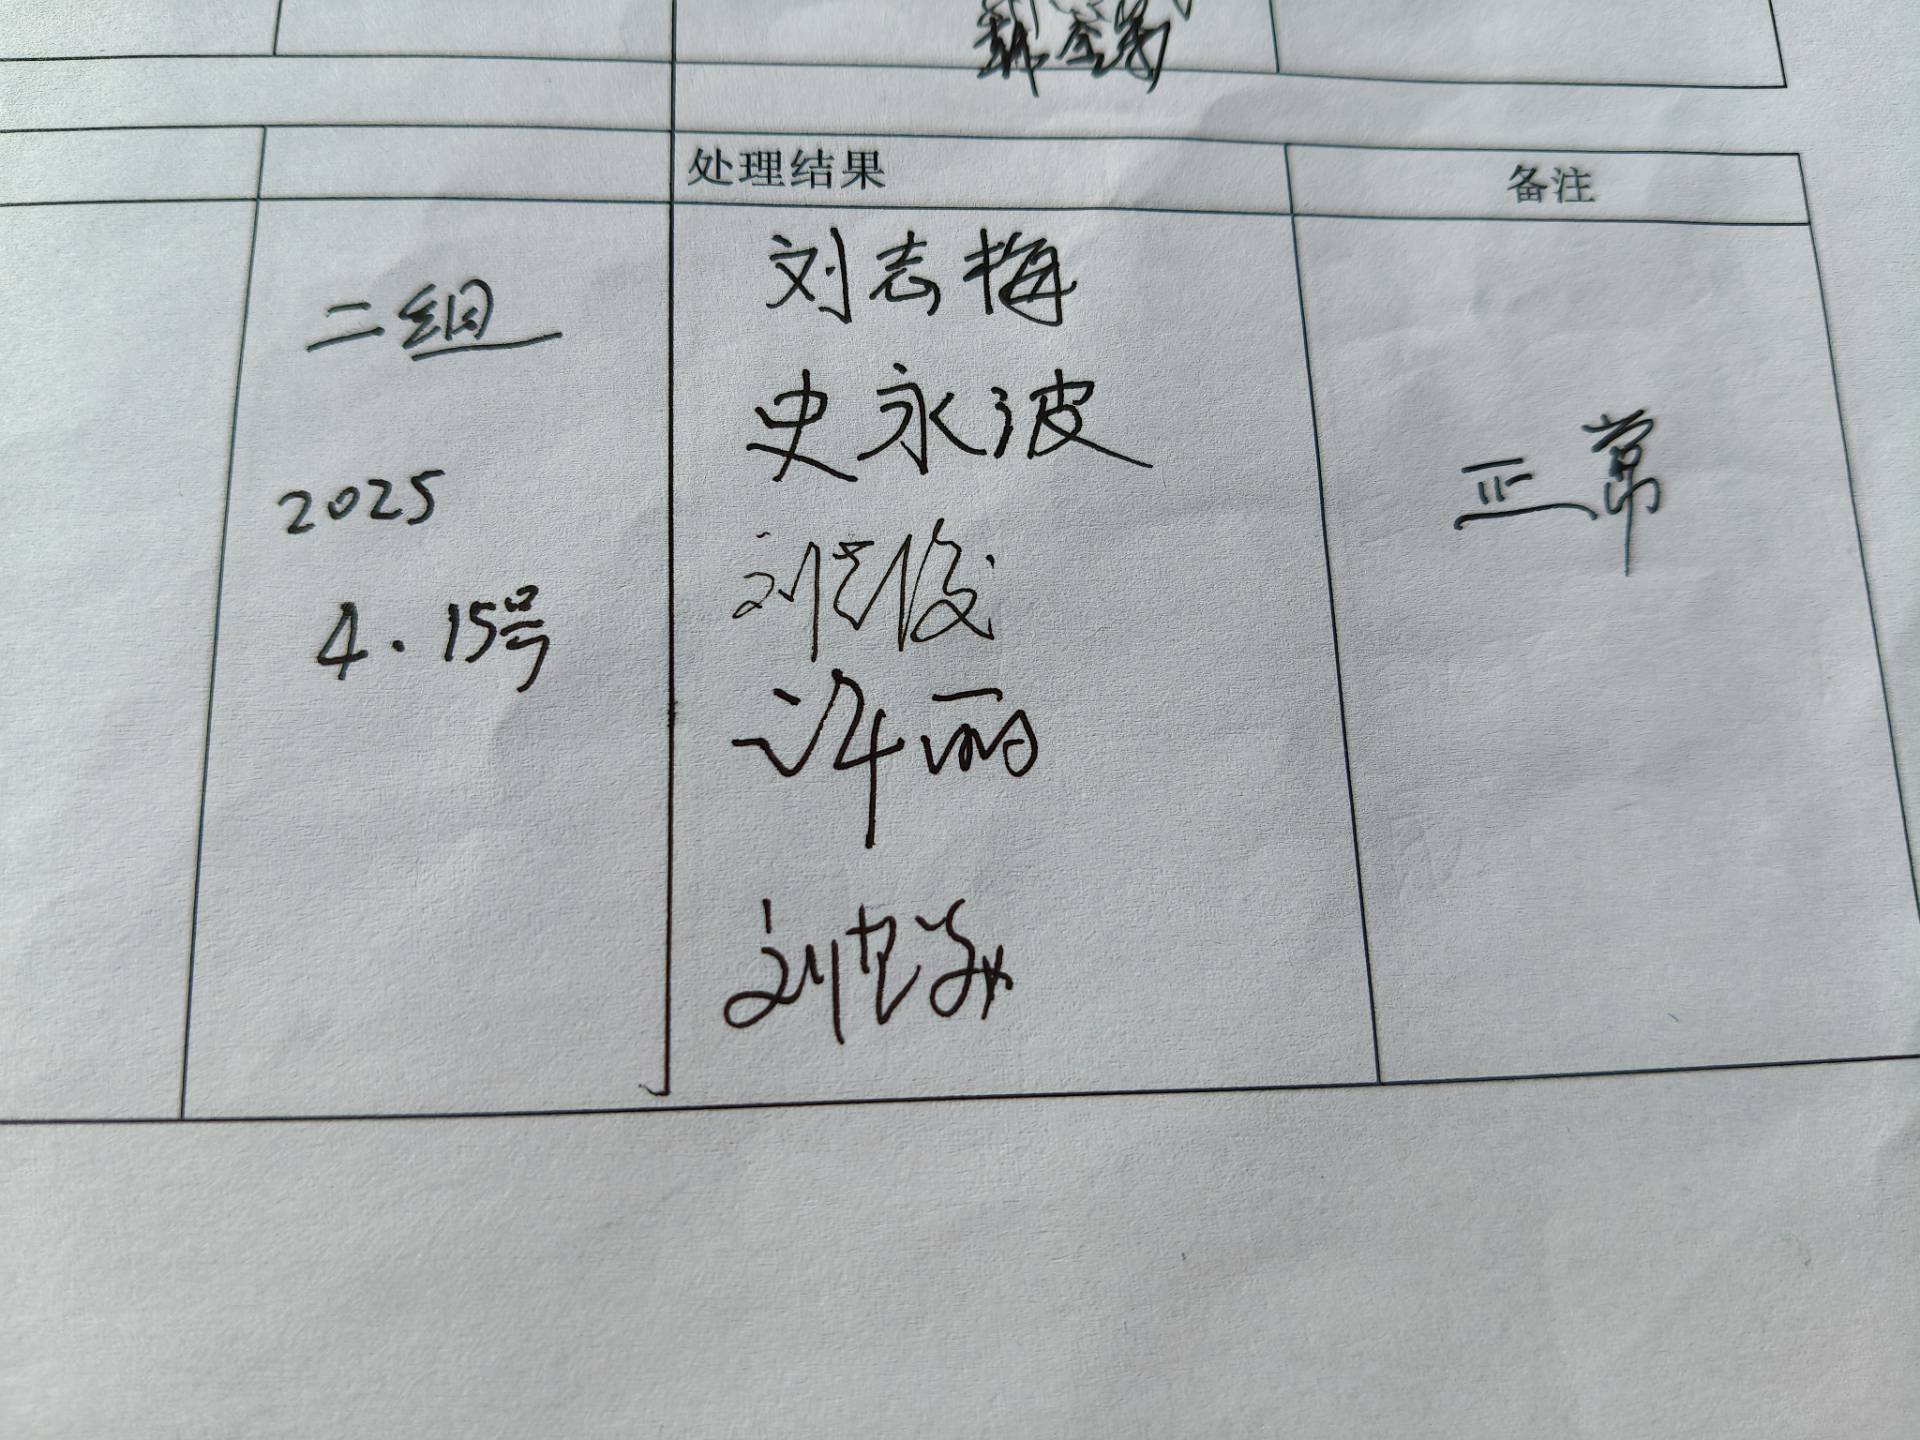 处理结果 备注
二组
2025
4.15号
刘志梅
史永波
刘俊
许丽
刘
正常